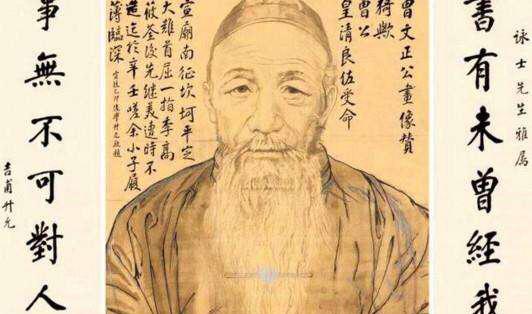 書有未曾經我
詠士先生雅屬
曾文正公畫像贊
猗歟
曾公
皇清良佐受命
宣廟南征坎坷平定
大難首屈一指李高
筱荃後先继美遠時不
造迄於辛壬嗟余小子履
薄臨深
事無不可對人
吉甫升允